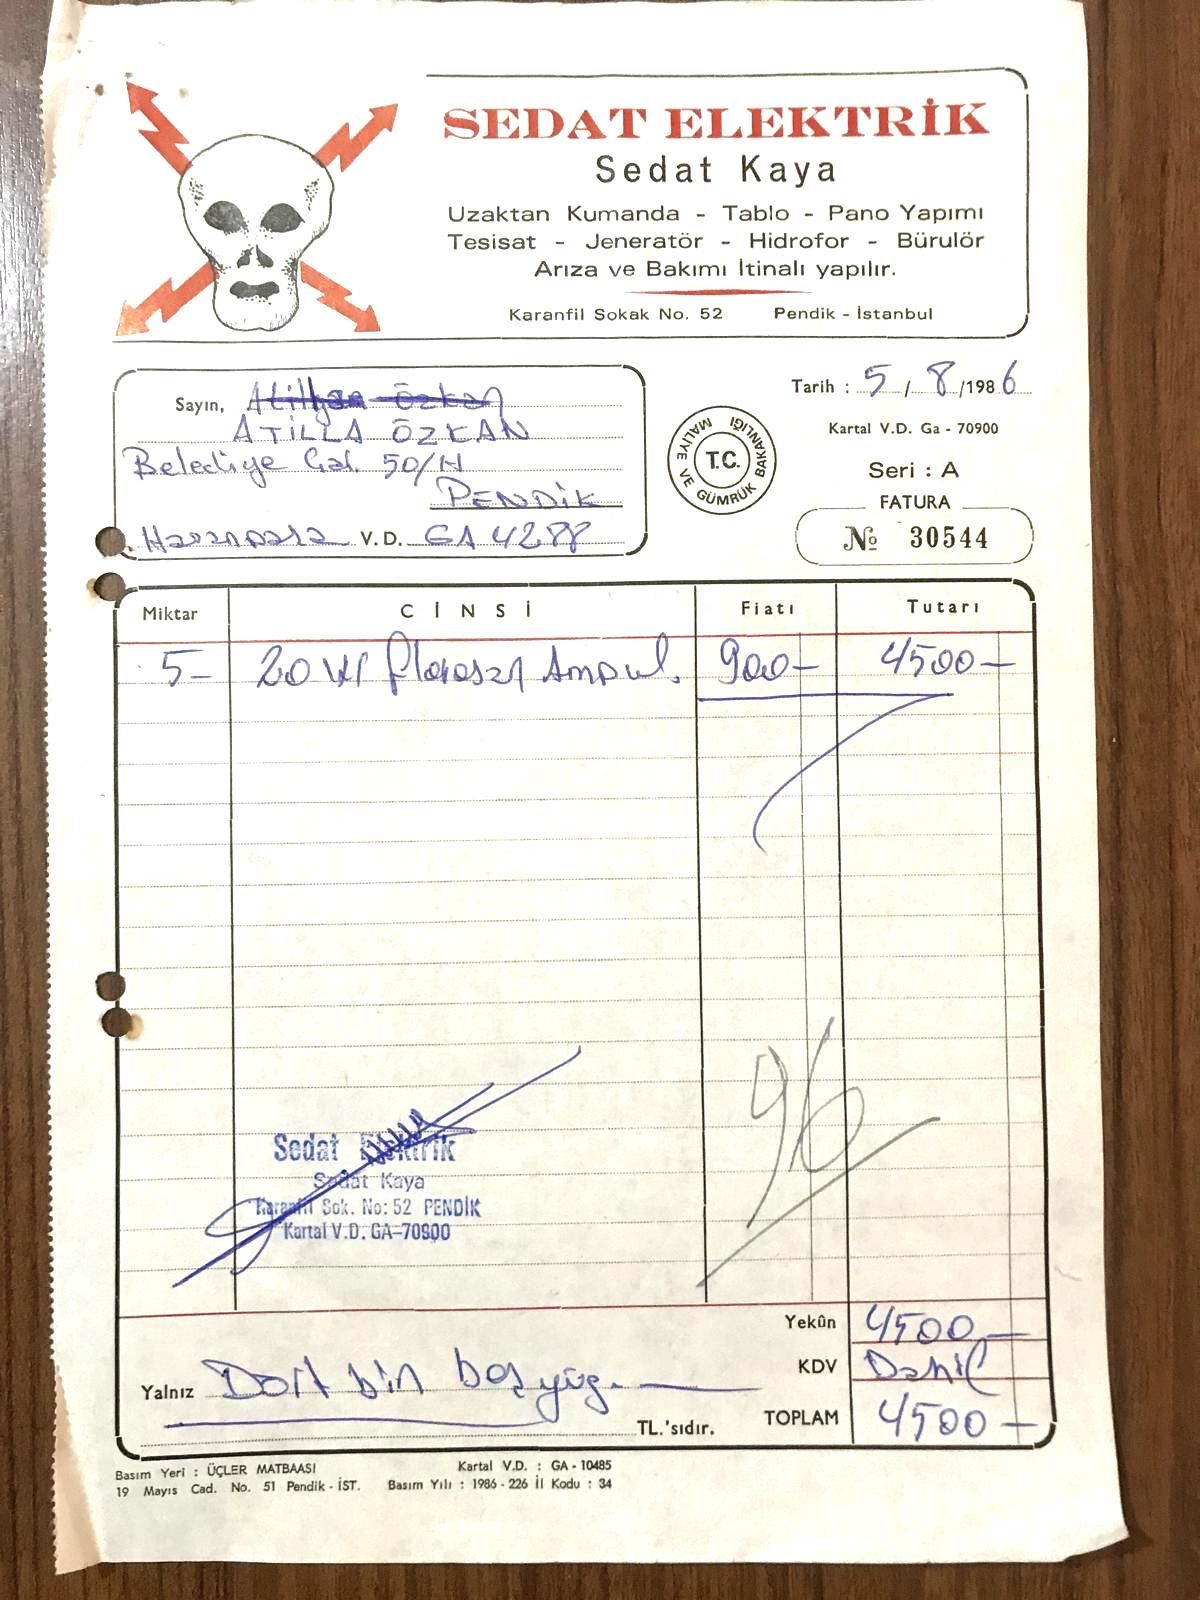 SEDAT ELEKTRİK
Sedat Kaya
Uzaktan Kumanda - Tablo - Pano Yapımı
Tesisat - Jeneratör - Hidrofor - Bürulör
Arıza ve Bakımı İtinalı yapılır.
Karanfil Sokak No. 52 Pendik - İstanbul
Sayın, Atilla Özkan
ATİLLA ÖZKAN
Belediye Gal. 50/H
PENDİK
Hasanpaşa V.D. GA 4288
Tarih : 5 / 8 /1986
Kartal V.D. Ga - 70900
T.C.
MALİYE VE GÜMRÜK BAKANLIĞI
Seri : A
FATURA
№ 30544
Miktar CİNSİ Fiatı Tutarı
5- 20 W floresan Ampul. 900- 4500-
96
Sedat Elektrik
Sedat Kaya
Karanfil Sok. No: 52 PENDİK
Kartal V.D. GA-70900
Yekûn 4500-
KDV Dahil
Yalnız Dört bin beşyüz.
TL.'sıdır. TOPLAM 4500-
Basım Yeri : ÜÇLER MATBAASI Kartal V.D. : GA - 10485
19 Mayıs Cad. No. 51 Pendik - İST. Basım Yılı : 1986 - 226 İl Kodu : 34